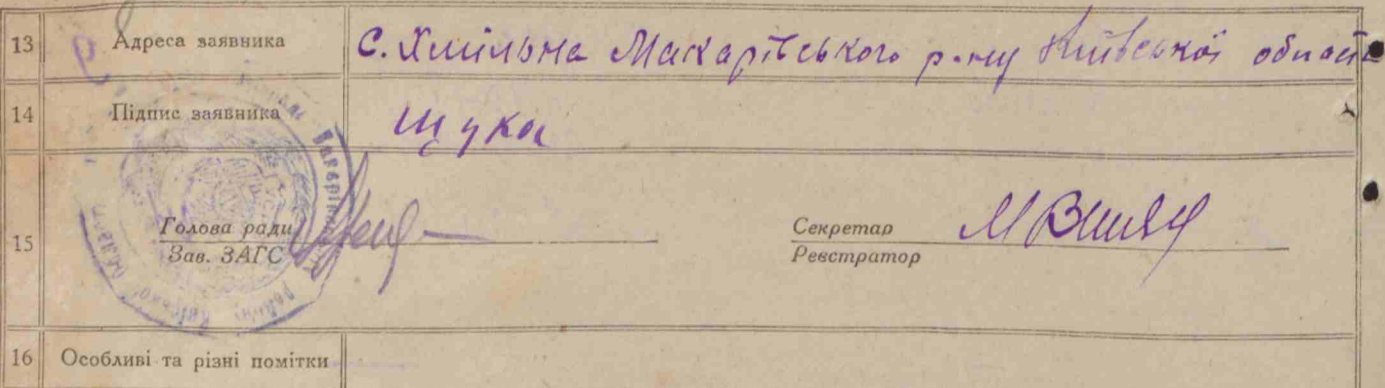 13 Адреса заявника с. Хмільна Макарівського р-ну Київської області
14 Підпис заявника Щука
15 Голова ради Секретар
Зав. ЗАГС Реєстратор
16 Особливі та різні помітки